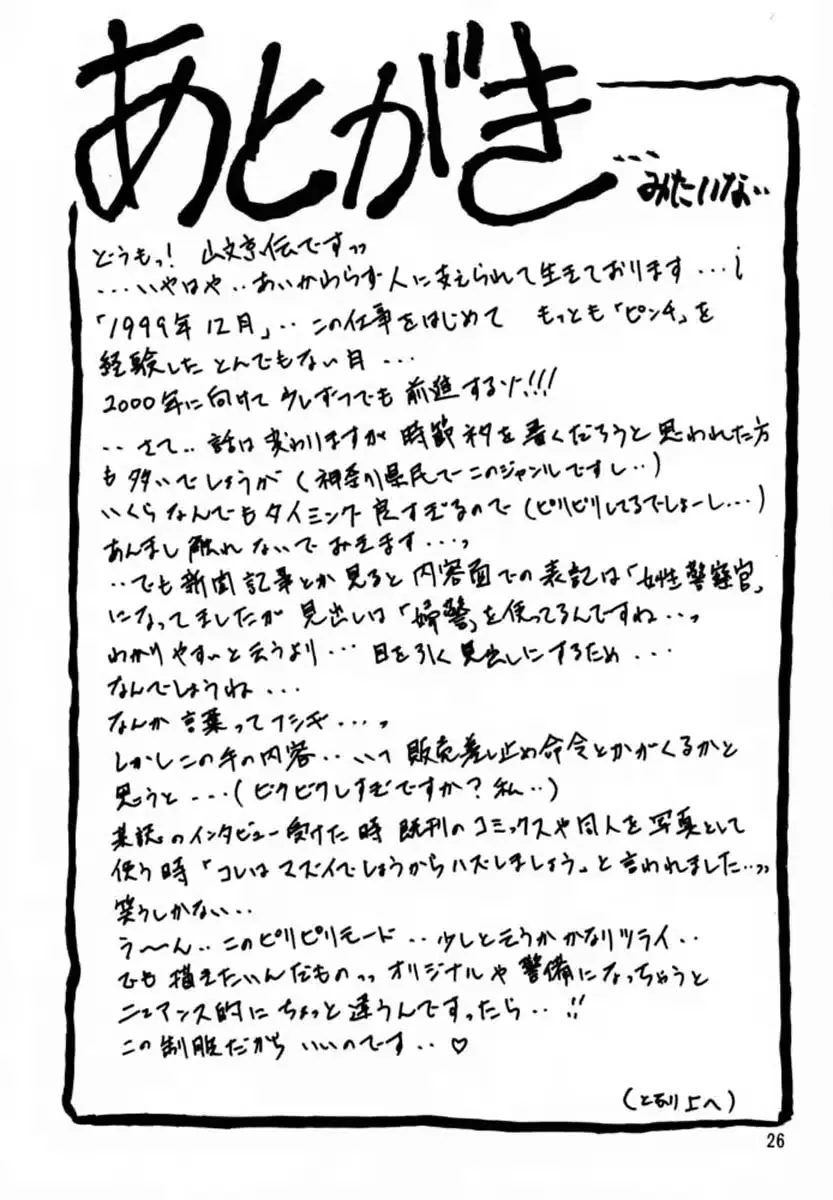 あとがき
…みたいな..
どうもっ! 山文京伝ですっ
...いやはや..あいかわらず人に支えられて生きております...i
「1999年12月」..この仕事をはじめて もっとも「ピンチ」を
経験した とんでもない月...
2000年に向けて少しずつでも 前進するゾ!!!
..さて..話は変わりますが 時節ネタを書くだろうと思われた方
も多いでしょうが(神奈川県民で このジャンルですし..)
いくらなんでもタイミング良すぎるので(ピリピリしてるでしょーし...)
あんまし触れないでおきます...っ
..でも新聞記事とか見ると 内容面での表記は「女性警察官」
になってましたが 見出しは「婦警」を使ってるんですね..っ
わかりやすいと云うより... 目を引く見出しにするため...
なんでしょうね...
なんか言葉ってフシギ...っ
しかしこの手の内容.. いつ販売差し止め命令とかがくるかと
思うと...(ビクビクしすぎですか?私..)
某誌のインタビュー受けた時 既刊のコミックスや同人を写真として
使う時「コレはマズイでしょうからハズしましょう」と言われました..っっ
笑うしかない..
う〜ん..このピリピリモード..少しと云うかかなりツライ..
でも描きたいんだものっっ オリジナルや警備になっちゃうと
ニュアンス的にちょっと違うんですったら..!!
この制服だから いいのです..♡
(となり上へ)
26